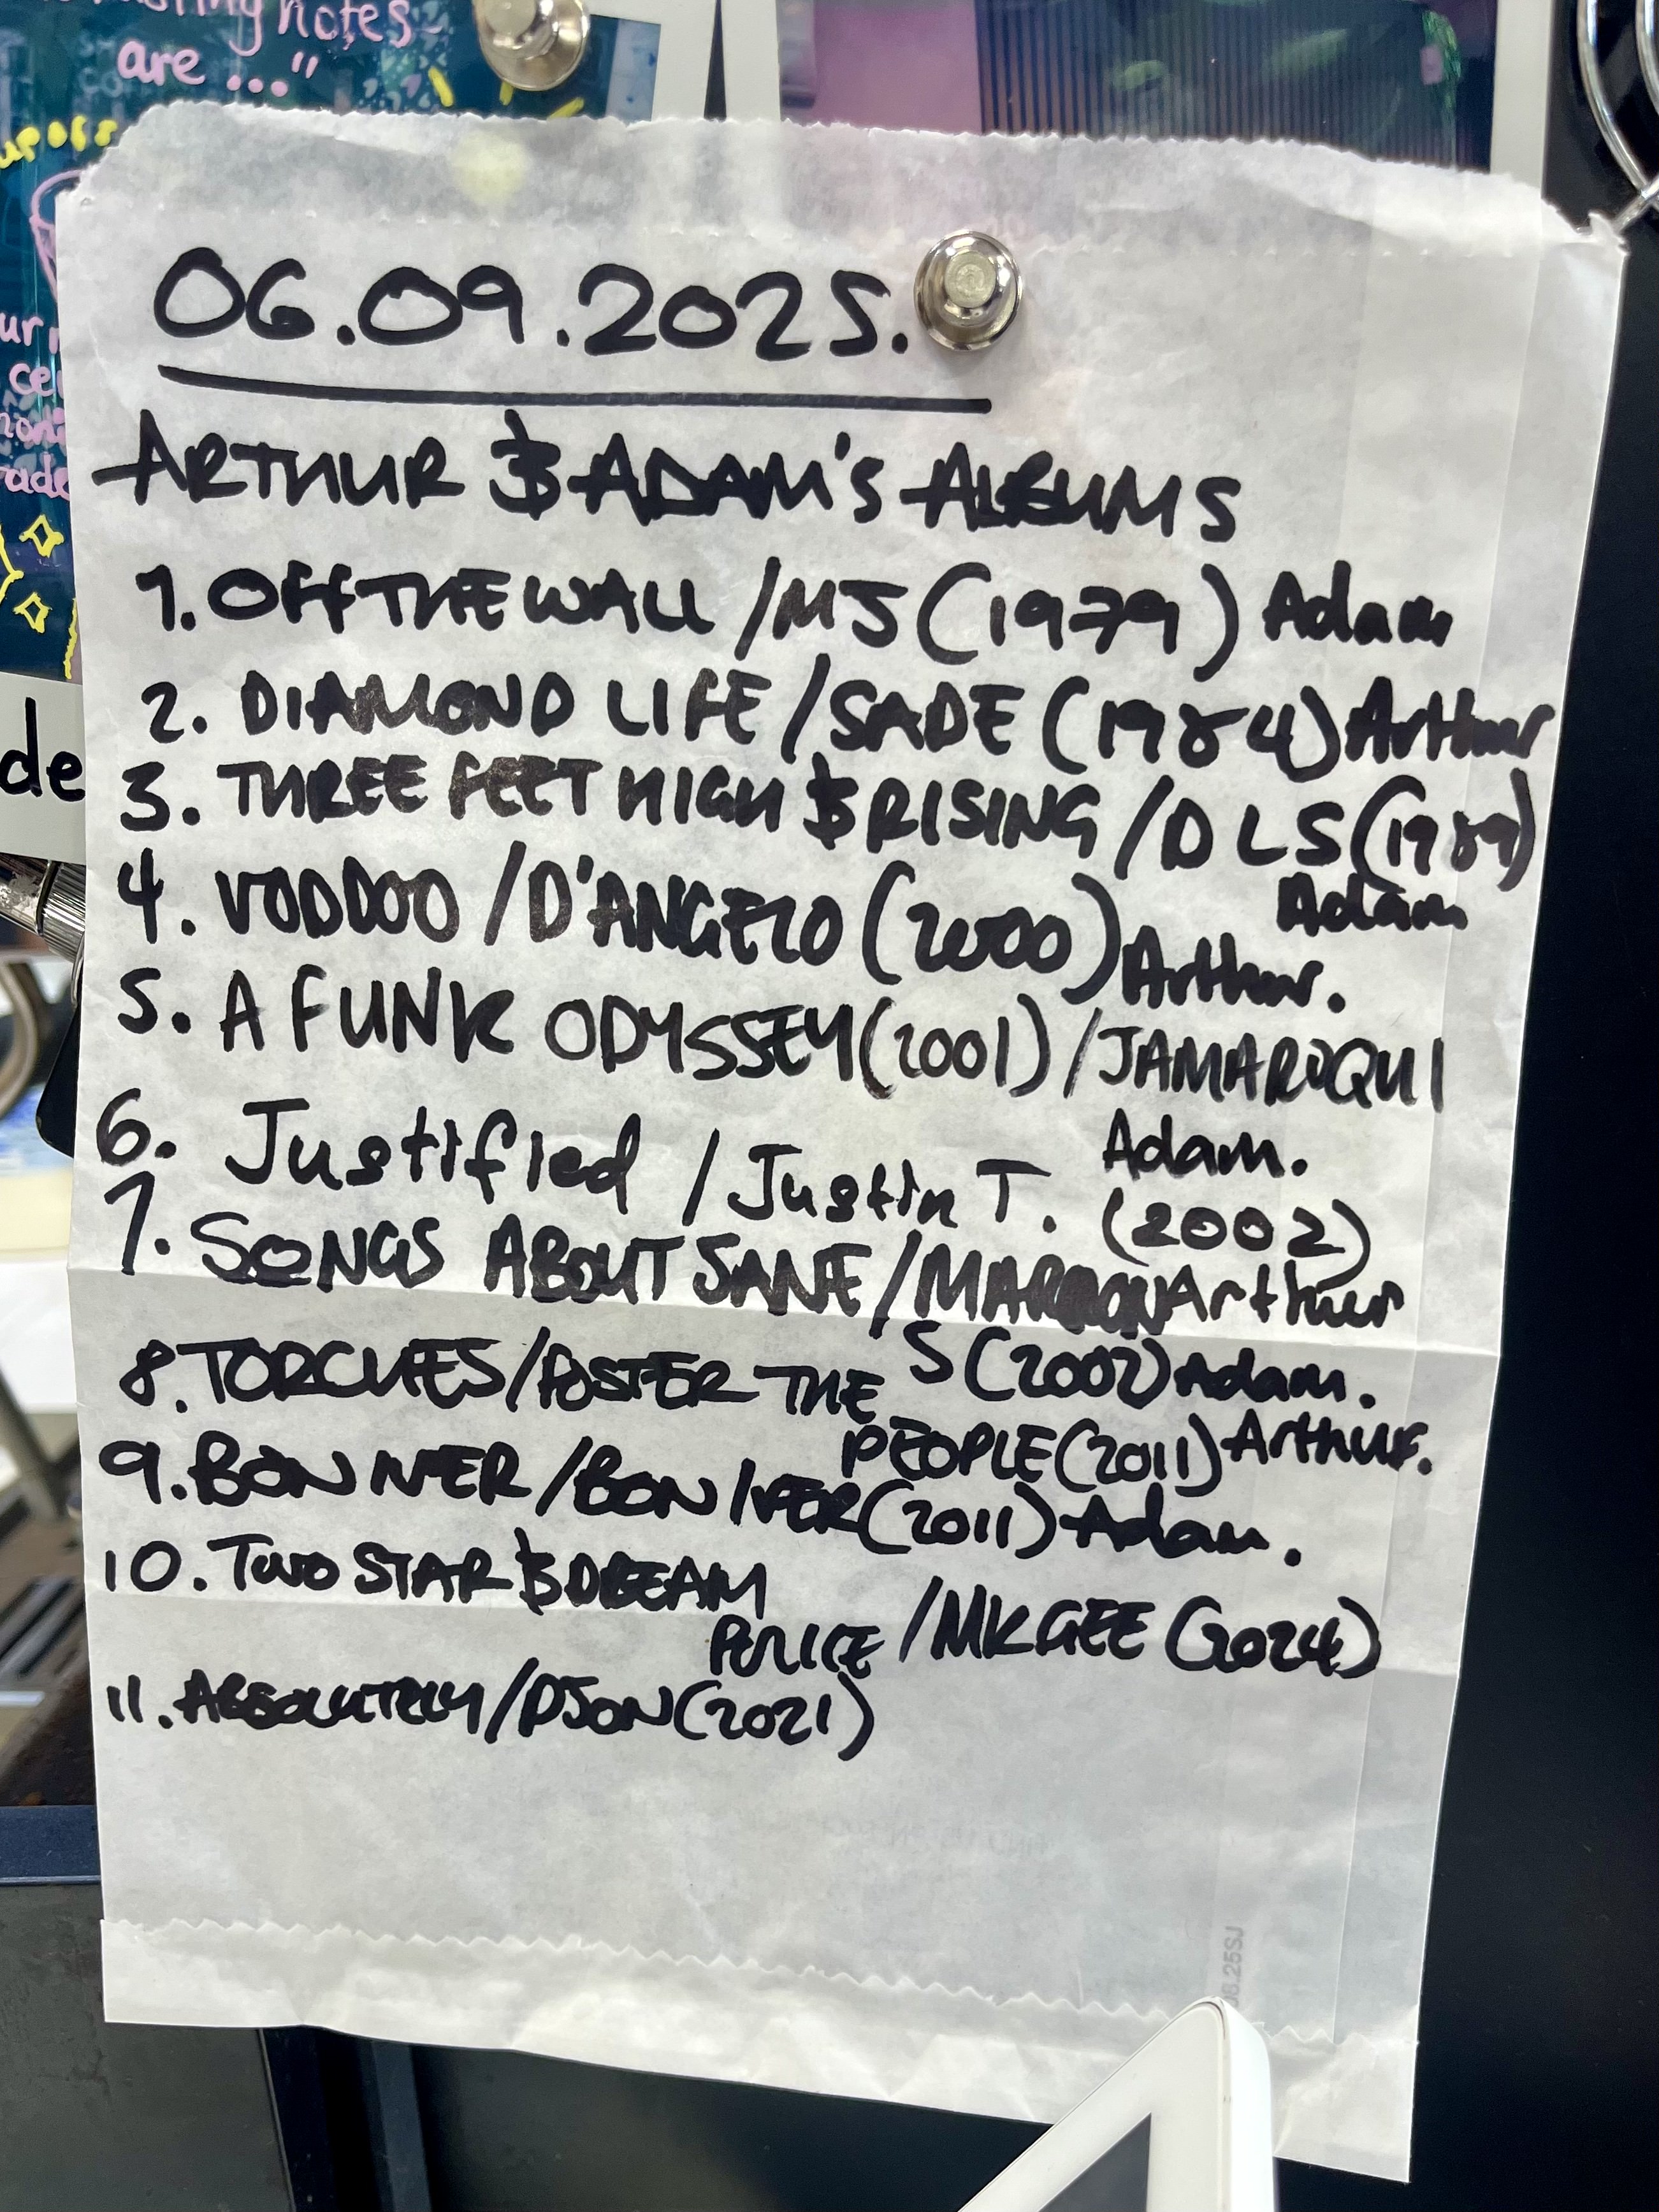 tasting notes
are ..."
de
06.09.2025.
ARTHUR & ADAM'S ALBUMS
1. OFF THE WALL / MJ (1979) Adam
2. DIAMOND LIFE / SADE (1984) Arthur
3. THREE FEET HIGH & RISING / DLS (1989)
Adam
4. VODDOO / D'ANGELO (2000) Arthur.
5. A FUNK ODYSSEY (2001) / JAMAROQUI
Adam.
6. Justified / Justin T. (2002)
Arthur
7. SONGS ABOUT JANE / MAROON
5 (2002) Adam.
8. TORCHES / FOSTER THE
PEOPLE (2011) Arthur.
9. BON IVER / BON IVER (2011) Adam.
10. TWO STAR & DREAM
POLICE / MKGEE (2024)
11. ABSOLUTELY / DJON (2021)